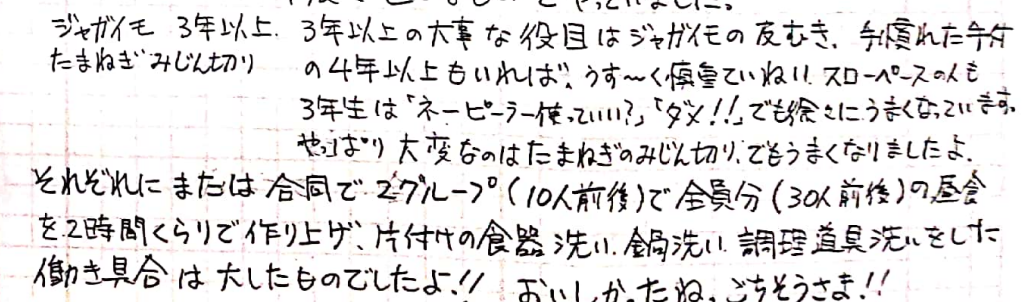 ジャガイモ 3年以上. 3年以上の大事な役目はジャガイモの皮むき. 手慣れた手付
たまねぎみじん切り の4年以上もいれば、うす〜く慎重ていねい! スローペースの人も
3年生は「ネーピーラー使っていい?」「ダメ!!」でも徐々にうまくなっています。
やっぱり大変なのはたまねぎのみじん切り.でもうまくなりましたよ.
それぞれにまたは合同で2グループ(10人前後)で全員分(30人前後)の昼食
を2時間くらいで作り上げ、片付けの食器洗い.鍋洗い.調理道具洗いをした
働き具合は大したものでしたよ!! おいしかったね。ごちそうさま!!